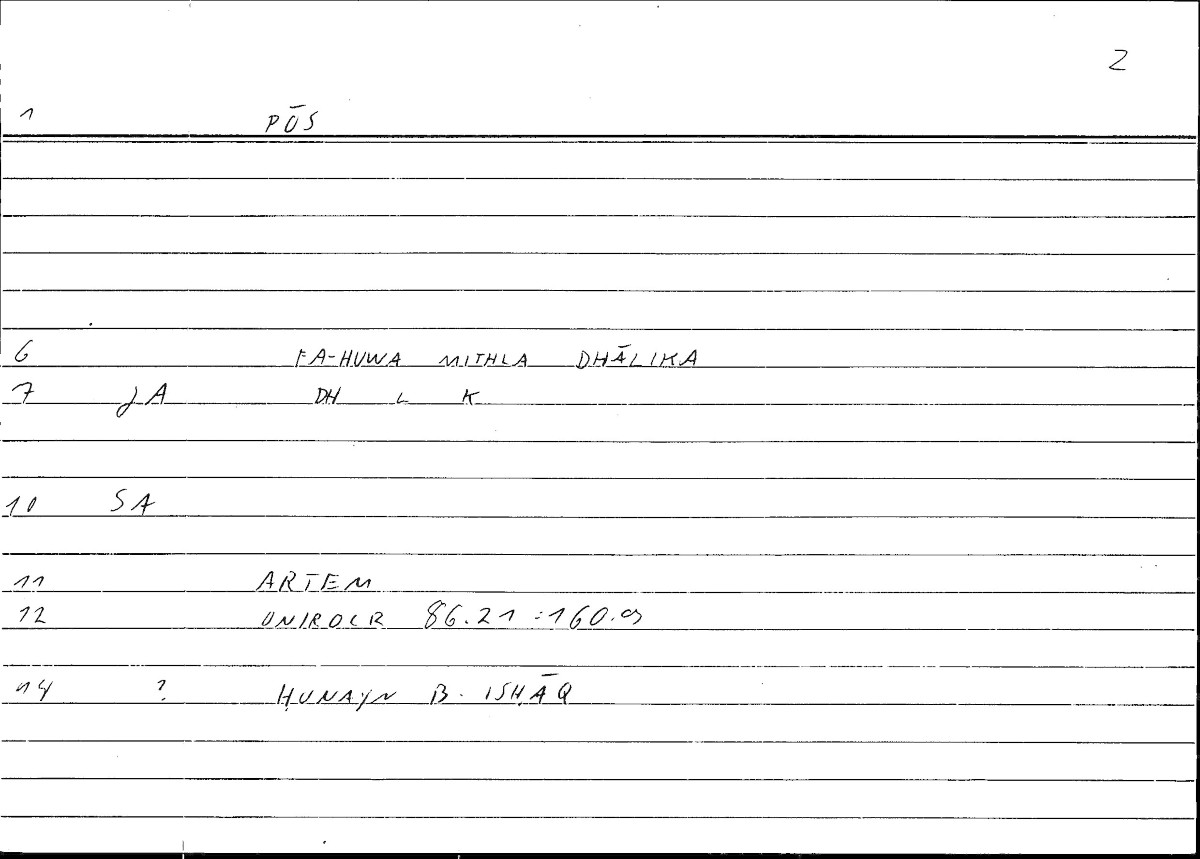 2
1 PŌS
6 FA-HUWA MITHLA DHĀLIKA
7 JA DH L K
10 SA
11 ARTEM
12 ONIROCR 86.21 = 160.9
14 ? ḤUNAYN B. ISḤĀQ